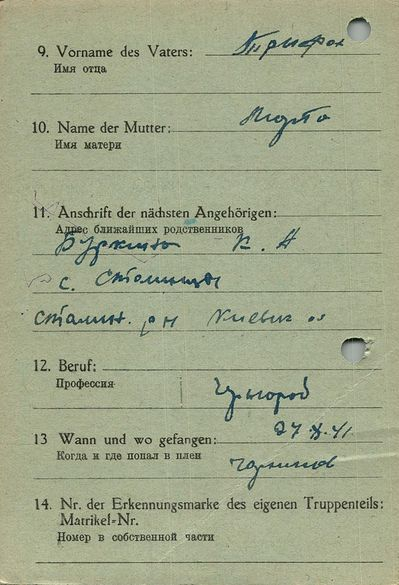 9. Vorname des Vaters: Трифон
Имя отца
10. Name der Mutter:
Имя матери
11. Anschrift der nächsten Angehörigen:
Адрес ближайших родственников
К. А
с.
Сталин. рн Киевск
12. Beruf:
Профессия
13 Wann und wo gefangen: 27 X 41
Когда и где попал в плен
14. Nr. der Erkennungsmarke des eigenen Truppenteils:
Matrikel-Nr.
Номер в собственной части